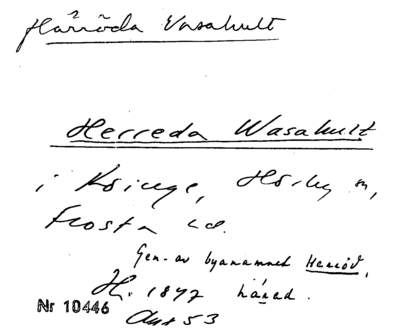 Härröda Vasahult
Herreda Wasahult
i Kxinge, Hörby m,
Frosta hd.
Gen. av byanamnet Herröd,
H. 1897 härad.
Nr 10446